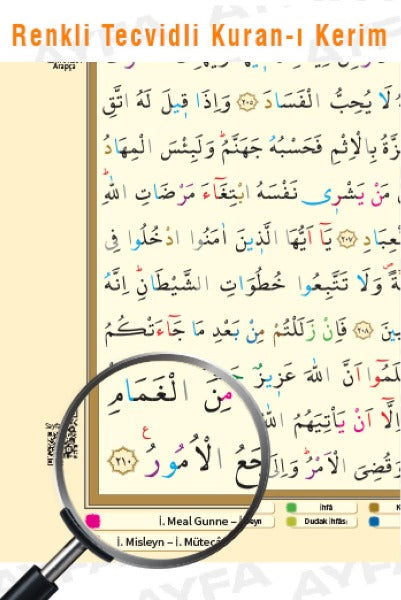 Renkli Tecvidli Kuran-ı Kerim
Arapça
لَا يُحِبُّ الْفَسَادَ ﴿٢٠٥﴾ وَاِذَا قٖيلَ لَهُ اتَّقِ
بِالْاِثْمِ فَحَسْبُهُ جَهَنَّمُ وَلَبِئْسَ الْمِهَادُ
مَنْ يَشْرٖى نَفْسَهُ ابْتِغَٓاءَ مَرْضَاتِ اللّٰهِ
﴿٢٠٧﴾ يَٓا اَيُّهَا الَّذٖينَ اٰمَنُوا ادْخُلُوا فِى
وَلَا تَتَّبِعُوا خُطُوَاتِ الشَّيْطَانِ اِنَّهُ
﴿٢٠٨﴾ فَاِنْ زَلَلْتُمْ مِنْ بَعْدِ مَا جَٓاءَتْكُمُ
اَنَّ اللّٰهَ عَزٖيزٌ
مِنَ الْغَمَامِ
اِلَّٓا اَنْ يَأْتِيَهُمُ اللّٰهُ
وَقُضِىَ الْاَمْرُ وَاِلَى
الْاُمُورُ ﴿٢١٠﴾
ع
İhfâ
İ. Meal Gunne –
Dudak İhfâsı
İ. Misleyn – İ.
AYFA